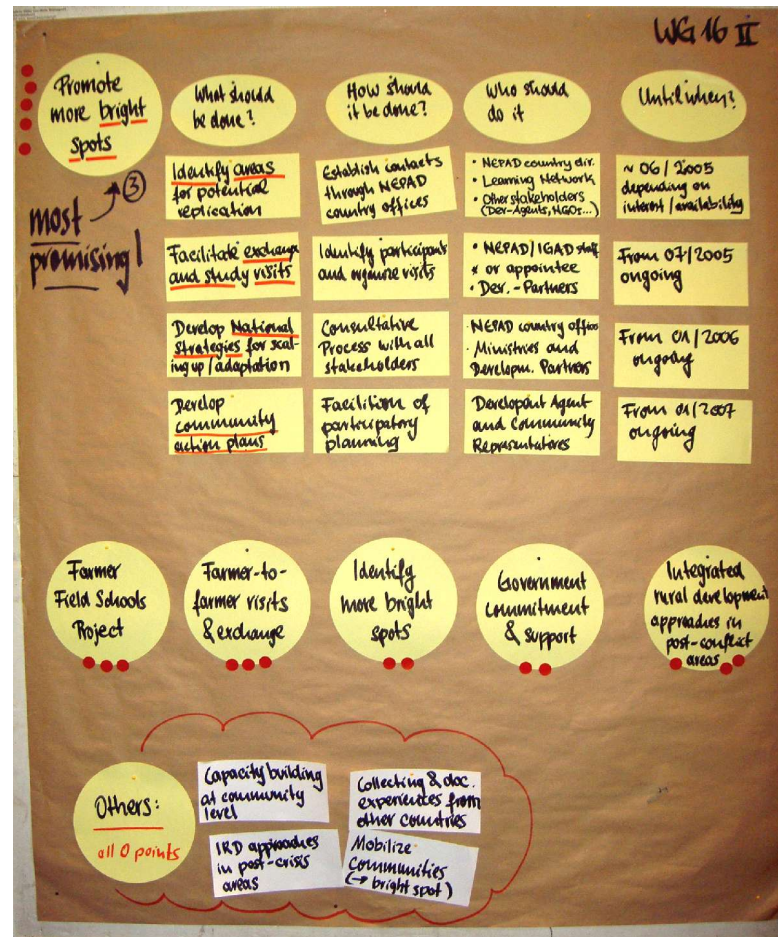 WG 16 II
Promote
more bright
spots
What should
be done?
How should
it be done?
Who should
do it
Until when?
most
promising!
③
Identify areas
for potential
replication
Establish contacts
through NEPAD
country offices
• NEPAD country dir.
• Learning Network
• Other stakeholders
(Dev-Agents, NGOs...)
~ 06/2005
depending on
interest/availability
Facilitate exchange
and study visits
Identify participants
and organize visits
• NEPAD/IGAD staff
or appointee
• Dev.-Partners
From 07/2005
ongoing
Develop National
Strategies for scal-
ing up/adaptation
Consultative
Process with all
stakeholders
• NEPAD country office
• Ministries and
Developm. Partners
From 01/2006
ongoing
Develop
community
action plans
Facilition of
participatory
planning
Developmt Agent
and Community
Representatives
From 01/2007
ongoing
Farmer
Field Schools
Project
Farmer-to-
farmer visits
& exchange
Identify
more bright
spots
Government
commitment
& support
Integrated
rural development
approaches in
post-conflict
areas
Others:
all 0 points
Capacity building
at community
level
Collecting & doc.
experiences from
other countries
IRD approaches
in post-crisis
areas
Mobilize
Communities
(→ bright spot)